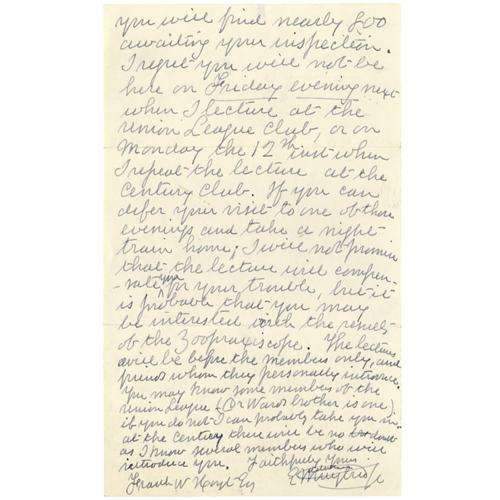 you will find nearly 800
awaiting your inspection.
I regret you will not be
here on Friday evening next
when I lecture at the
Union League Club, or on
Monday the 12th inst when
I repeat the lecture at the
Century Club. If you can
defer your visit to one of those
evenings and take a night
train home; I will not promise
that the lecture will compen-
-sate you for your trouble, but it
is probable that you may
be interested with the results
of the Zoopraxiscope. The lectures
will be before the members only, and
friends whom they personally introduce,
You may know some members of the
Union League (Dr Wards brother is one)
if you do not I can probably take you in.
at the Century there will be no doubt
as I know several members who will
introduce you. Faithfully Yours
Frank W Hoyt Esq